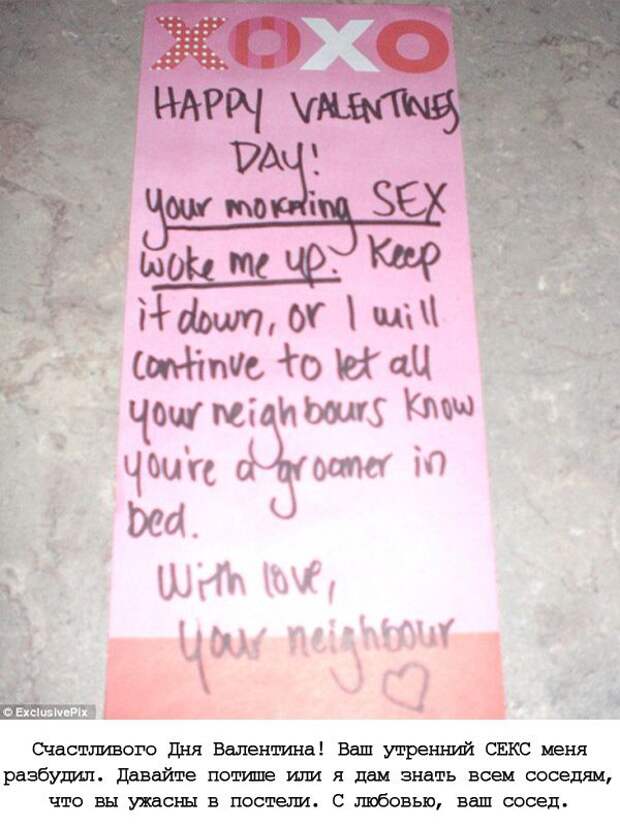 XOXO
HAPPY VALENTINES
DAY!
Your morning SEX
woke me up. Keep
it down, or I will
continue to let all
your neighbours know
you're a groaner in
bed.
With love,
your neighbour
© ExclusivePix
Счастливого Дня Валентина! Ваш утренний СЕКС меня
разбудил. Давайте потише или я дам знать всем соседям,
что вы ужасны в постели. С любовью, ваш сосед.